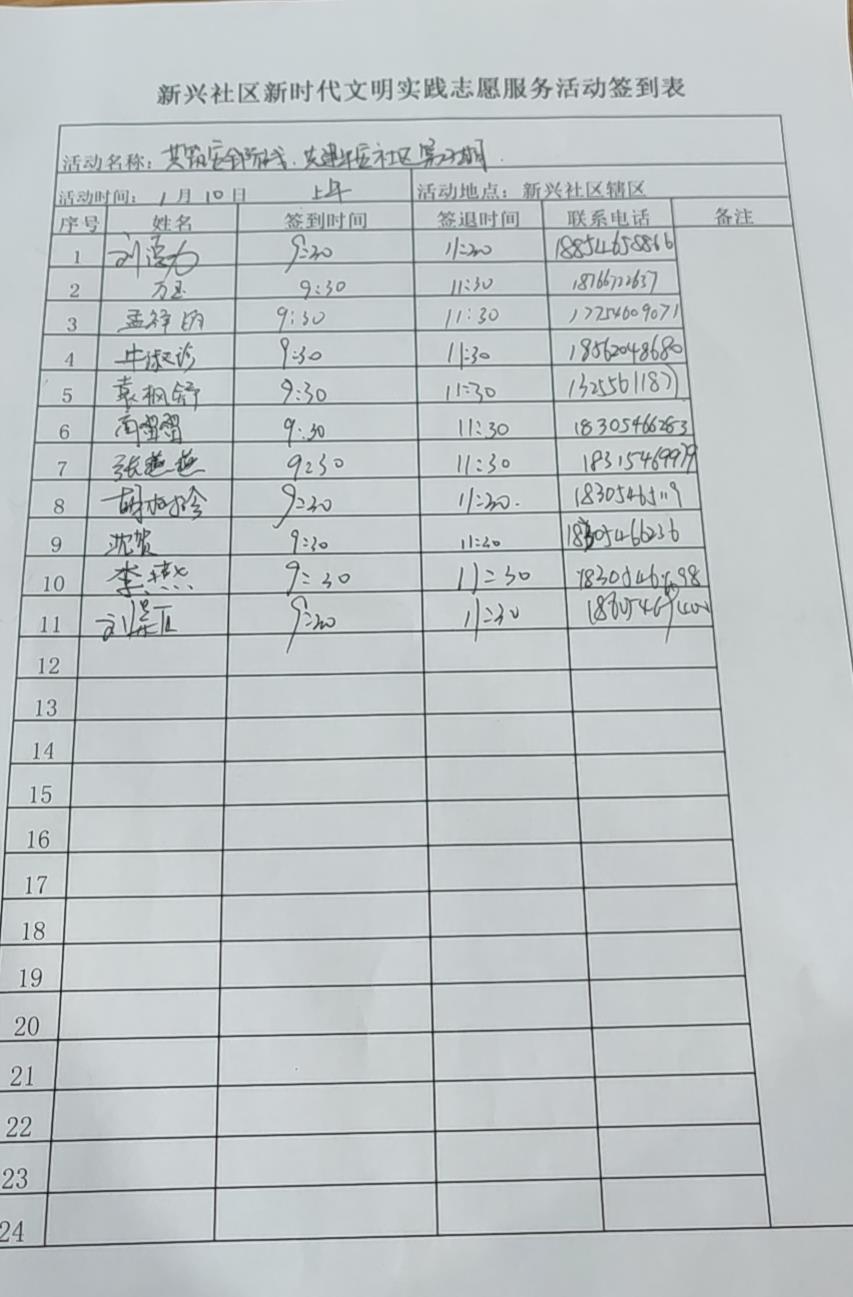 新兴社区新时代文明实践志愿服务活动签到表
活动名称：共筑安全防线，共建平安社区第二期
活动时间：1月10日 上午 活动地点：新兴社区辖区
序号 姓名 签到时间 签退时间 联系电话 备注
1 刘 9:30 11:30 18854658866
2 万玉 9:30 11:30 18766722637
3 孟祥 9:30 11:30 17254609071
4 牛淑珍 9:30 11:30 18562048680
5 袁枫舒 9:30 11:30 13255611877
6 9:30 11:30 18305466283
7 张燕燕 9:30 11:30 18315469979
8 胡 9:30 11:30 18305465119
9 沈贺 9:30 11:30 18305466236
10 李燕 9:30 11:30
11 刘 9:30 11:30
12
13
14
15
16
17
18
19
20
21
22
23
24